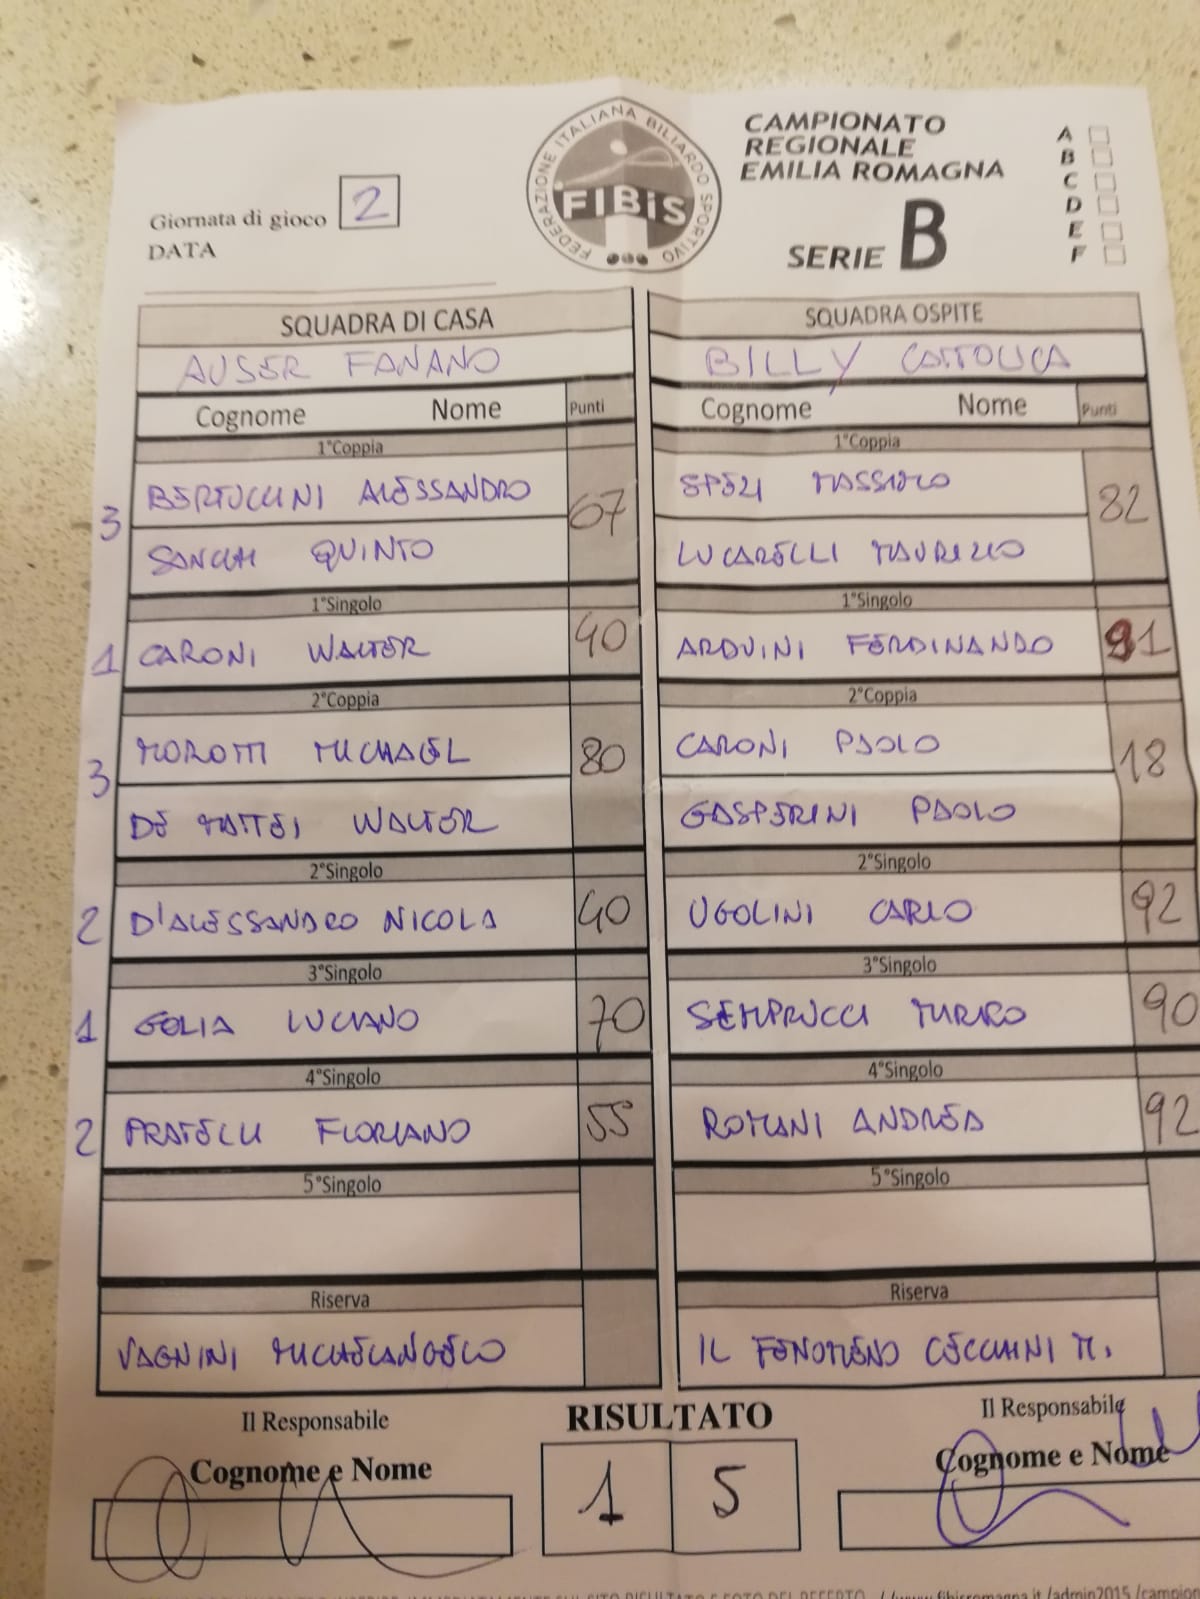 FEDERAZIONE ITALIANA BILIARDO SPORTIVO
FIBiS
CAMPIONATO
REGIONALE
EMILIA ROMAGNA
SERIE B
A
B
C
D
E
F
Giornata di gioco 2
DATA
SQUADRA DI CASA SQUADRA OSPITE
AUSER FANANO BILLY CATTOLICA
Cognome Nome Punti Cognome Nome Punti
1°Coppia 1°Coppia
3 BERTUCCINI ALESSANDRO 67 SPEZI MASSIMO 82
SANCHI QUINTO LUCARELLI MAURIZIO
1°Singolo 1°Singolo
1 CARONI WALTER 40 ARDUINI FERDINANDO 91
2°Coppia 2°Coppia
3 MOROTTI MICHAEL 80 CARONI PAOLO 18
DE MATTEI WALTER GASPERINI PAOLO
2°Singolo 2°Singolo
2 D'ALESSANDRO NICOLA 40 UGOLINI CARLO 92
3°Singolo 3°Singolo
1 GOLIA LUCIANO 70 SEMPRUCCI MIRRO 90
4°Singolo 4°Singolo
2 PRATELLI FLORIANO 55 ROMANI ANDREA 92
5°Singolo 5°Singolo
Riserva Riserva
VAGNINI MICHELANGELO IL FENOMENO CECCHINI M.
Il Responsabile RISULTATO Il Responsabile
Cognome e Nome 1 5 Cognome e Nome
SITO RISULTATO E FOTO DEL REFERTO //www.fibisromagna.it/admin2015/campion